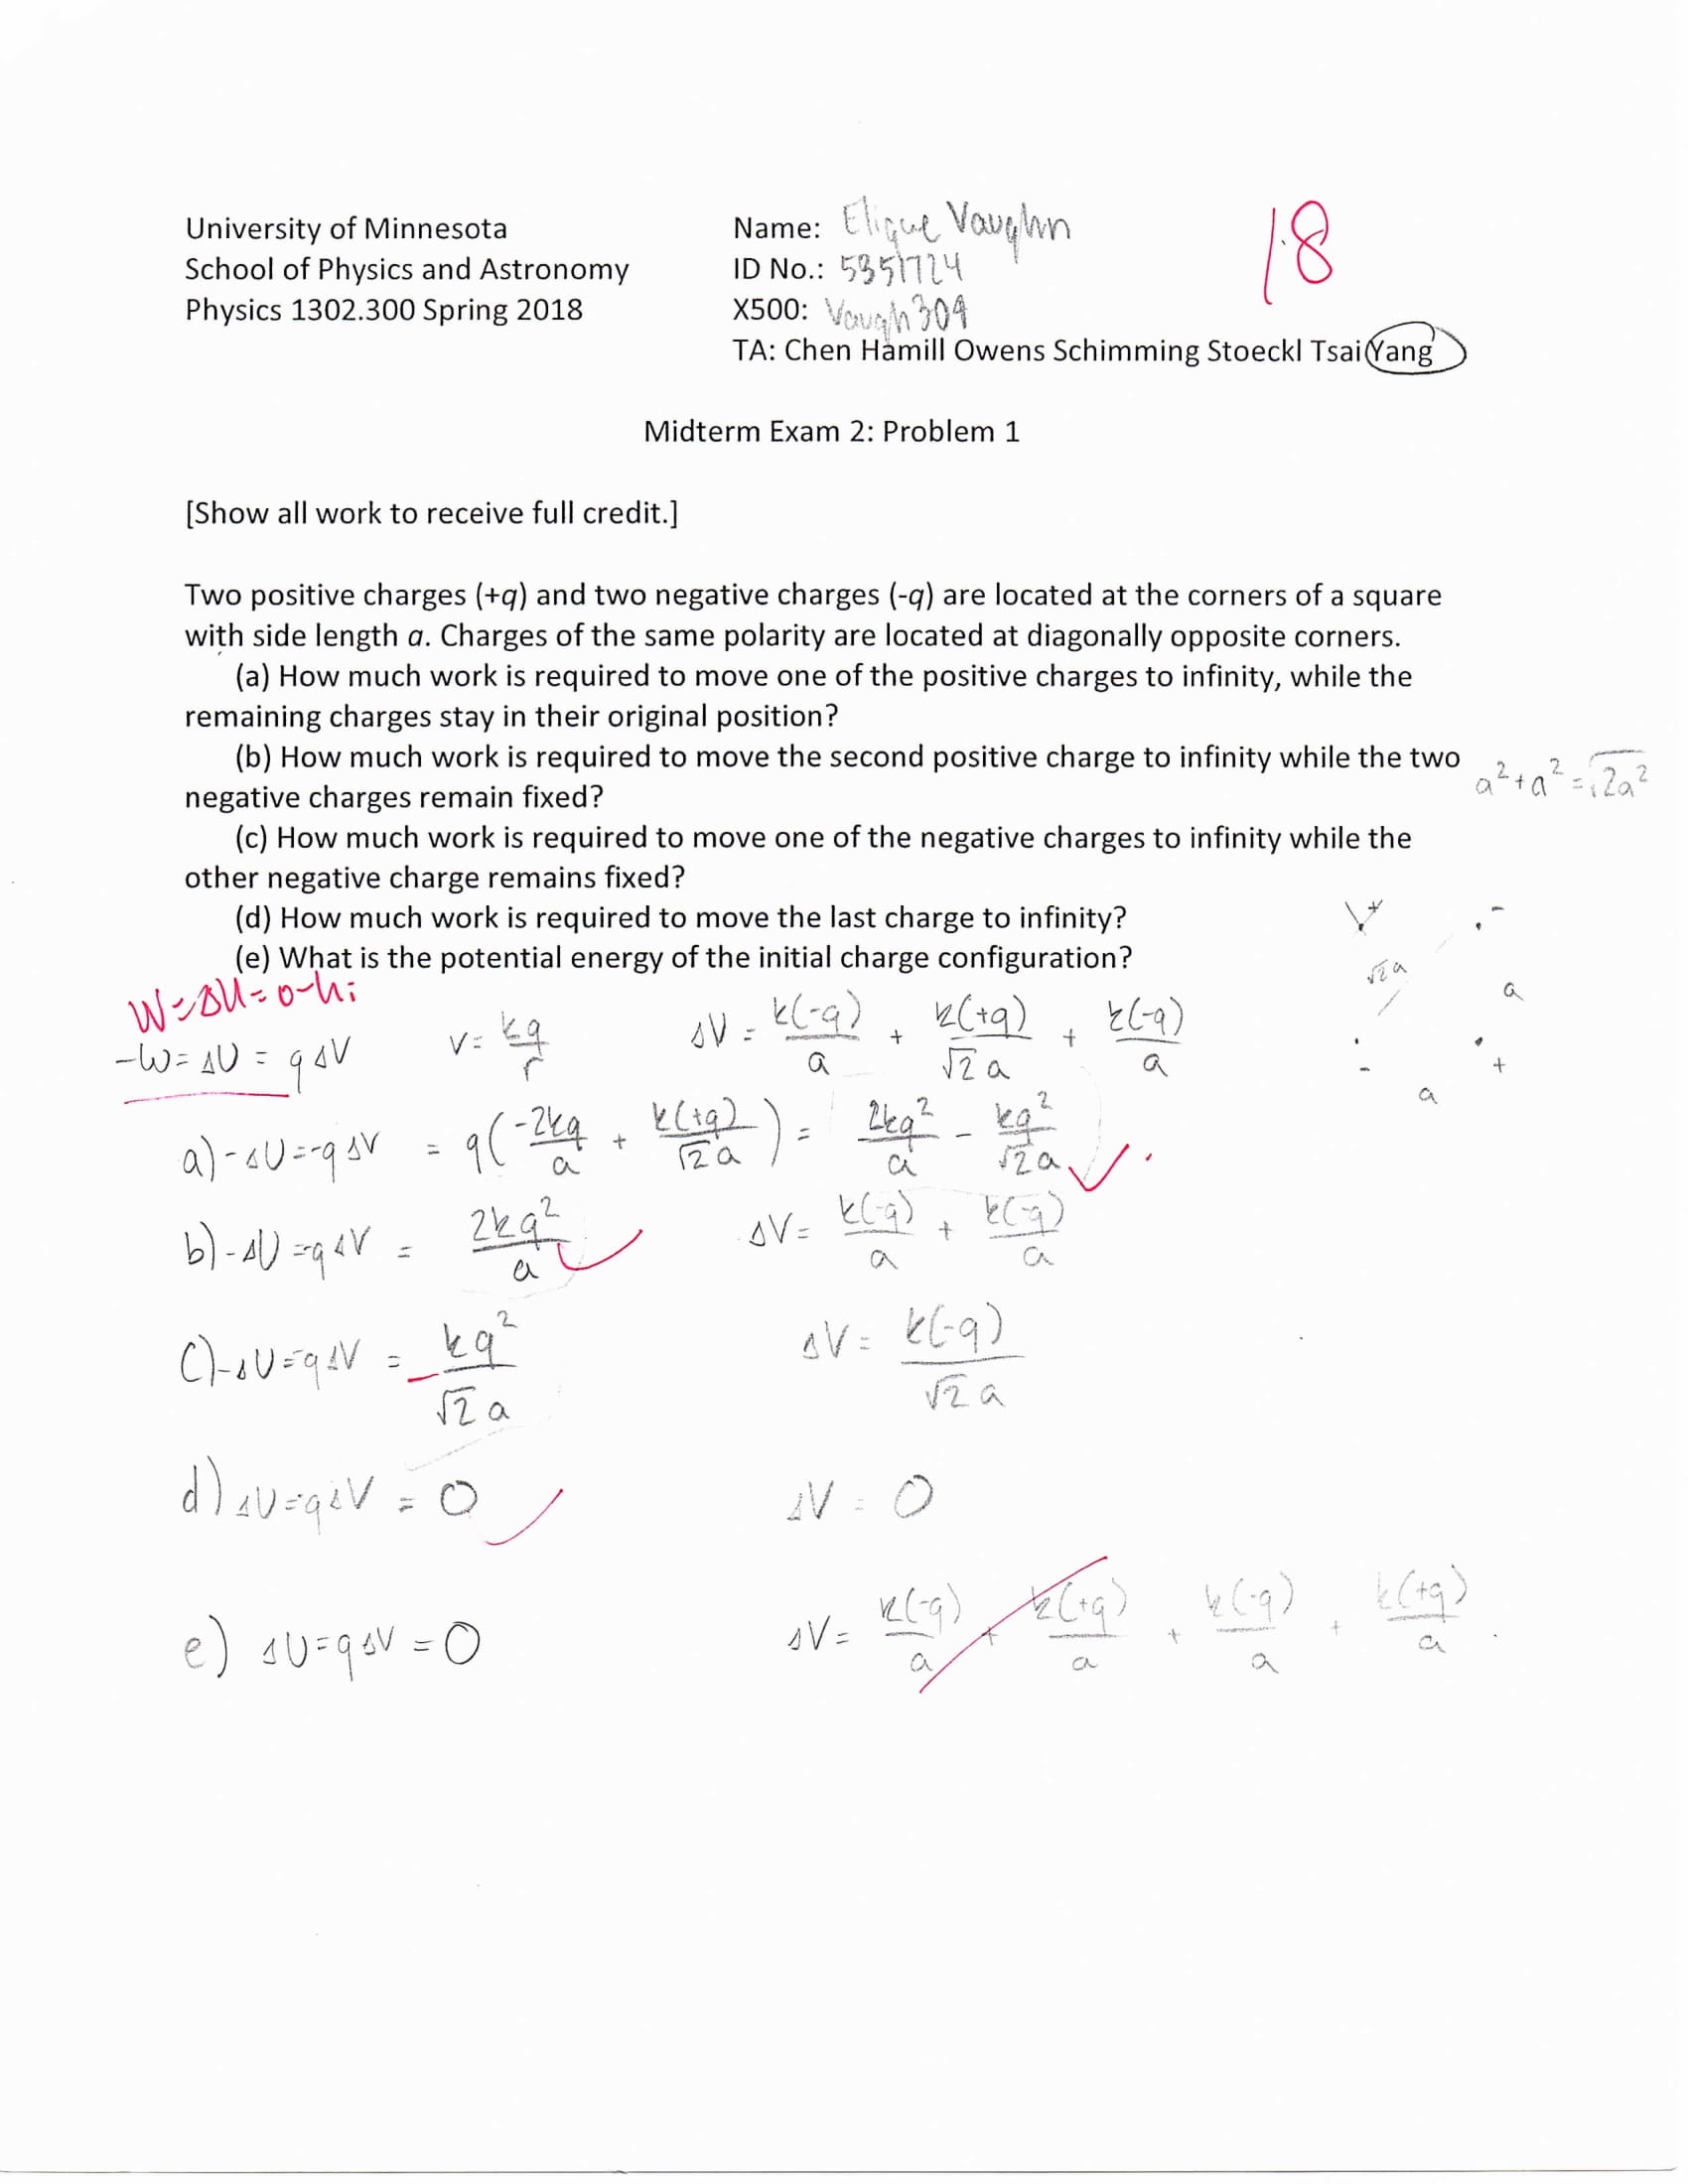 University of Minnesota
School of Physics and Astronomy
Physics 1302.300 Spring 2018
Name: Elique Vaughn
ID No.: 5351724
X500: Vaugh304
TA: Chen Hamill Owens Schimming Stoeckl Tsai Yang
18
Midterm Exam 2: Problem 1
[Show all work to receive full credit.]
Two positive charges (+q) and two negative charges (-q) are located at the corners of a square
with side length a. Charges of the same polarity are located at diagonally opposite corners.
(a) How much work is required to move one of the positive charges to infinity, while the
remaining charges stay in their original position?
(b) How much work is required to move the second positive charge to infinity while the two
negative charges remain fixed?
a²+a²=√2a²
(c) How much work is required to move one of the negative charges to infinity while the
other negative charge remains fixed?
(d) How much work is required to move the last charge to infinity?
(e) What is the potential energy of the initial charge configuration?
+ -
√2a a
- +
a
W=ΔU=0-Ui
-W=ΔU=qΔV V=kq/r ΔV=k(-q)/a + k(+q)/√2a + k(-q)/a
a) -ΔU=-qΔV = q(-2kq/a + k(+q)/√2a) = 2kq²/a - kq²/√2a
b) -ΔU=-qΔV = 2kq²/a ΔV=k(-q)/a + k(-q)/a
c) -ΔU=-qΔV = -kq²/√2a ΔV=k(-q)/√2a
d) ΔU=qΔV = 0 ΔV=0
e) ΔU=qΔV=0 ΔV=k(-q)/a + k(+q)/a + k(-q)/a + k(+q)/a